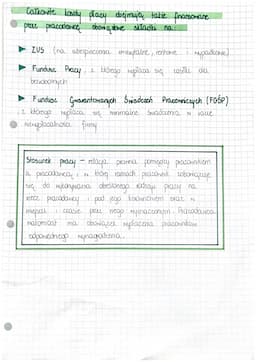 Całkowite koszty płacy obejmują także finansowane
przez pracodawcę obowiązkowe składki na:
ZUS (na ubezpieczenia emerytalne, rentowe i wypadkowe)
Fundusz Pracy, z którego wypłaca się zasiłki dla
bezrobotnych
Fundusz Gwarantowanych Świadczeń Pracowniczych (FGŚP)
, z którego wypłaca się minimalne świadczenia w razie
niewypłacalności firmy
Stosunek pracy – relacja prawna pomiędzy pracownikiem
a pracodawcą, w której ramach pracownik zobowiązuje
się do wykonywania określonego rodzaju pracy na
rzecz pracodawcy i pod jego kierownictwem oraz w
miejscu i czasie przez niego wyznaczonym. Pracodawca
natomiast ma obowiązek wypłacenia pracownikowi
odpowiedniego wynagrodzenia.